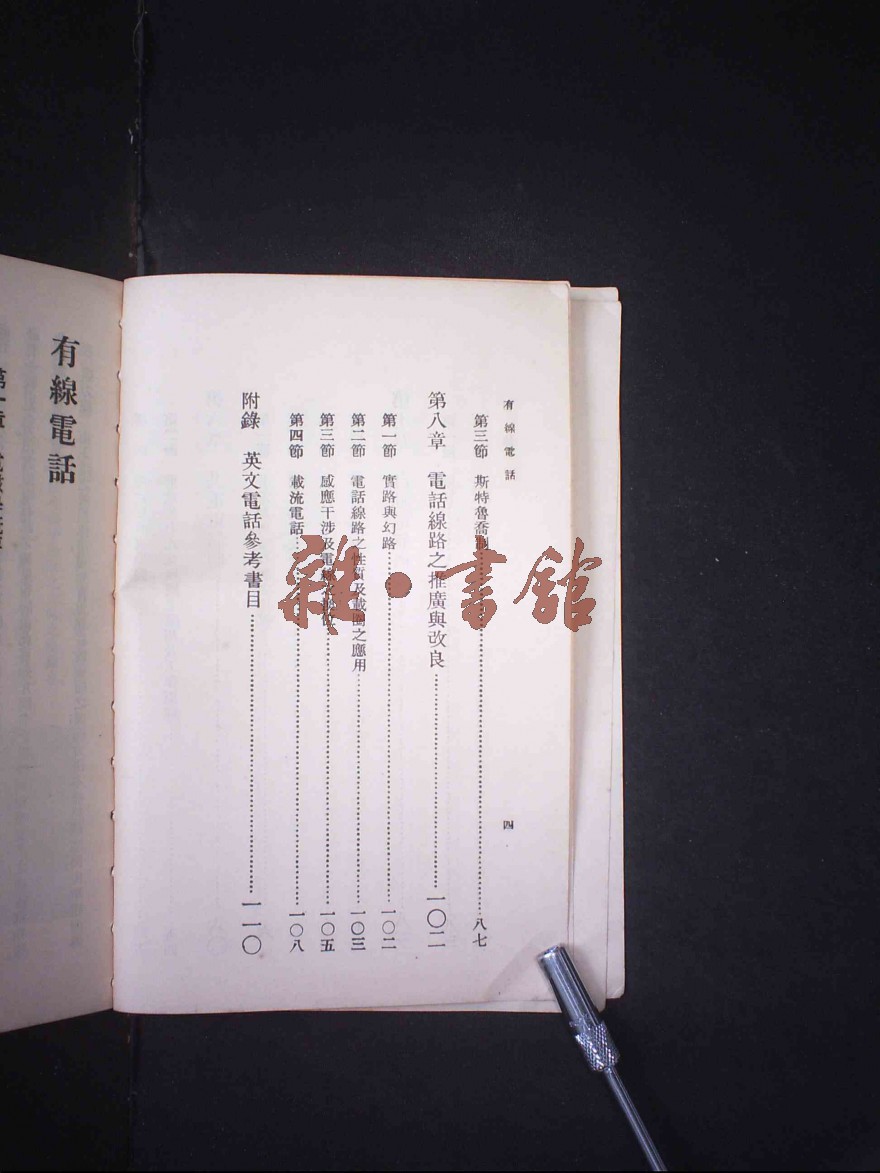 有線電話
四
第三節 斯特魯喬制……八七
第八章 電話線路之推廣與改良……一〇二
第一節 實路與幻路……一〇二
第二節 電話線路之性質及載圈之應用……一〇三
第三節 感應干涉及電……一〇五
第四節 載流電話……一〇八
附錄 英文電話參考書目……一一〇
有線電話
雜·書館